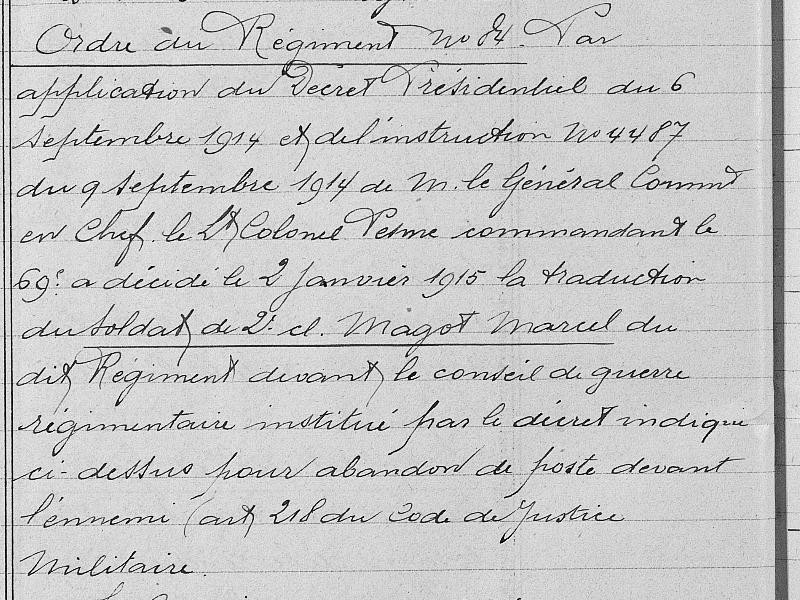 Ordre du Régiment No 84. Par
application du Décret Présidentiel du 6
septembre 1914 et de l'instruction No 4487
du 9 septembre 1914 de M. le Général Commt
en Chef, le Lt Colonel Pesme commandant le
69e a décidé le 2 Janvier 1915 la traduction
du soldat de 2e cl. Magot Marcel du
dit Régiment devant le conseil de guerre
régimentaire institué par le décret indiqué
ci-dessus pour abandon de poste devant
l'ennemi (art 218 du Code de Justice
Militaire.